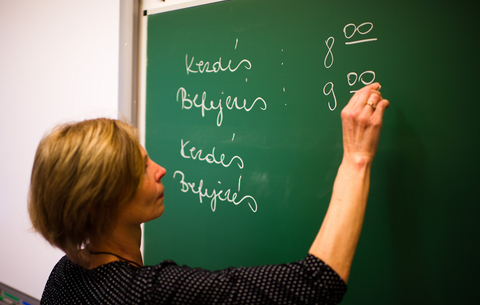 Kezdés : 8 00
Befejezés : 9 00
Kezdés
Befejezés